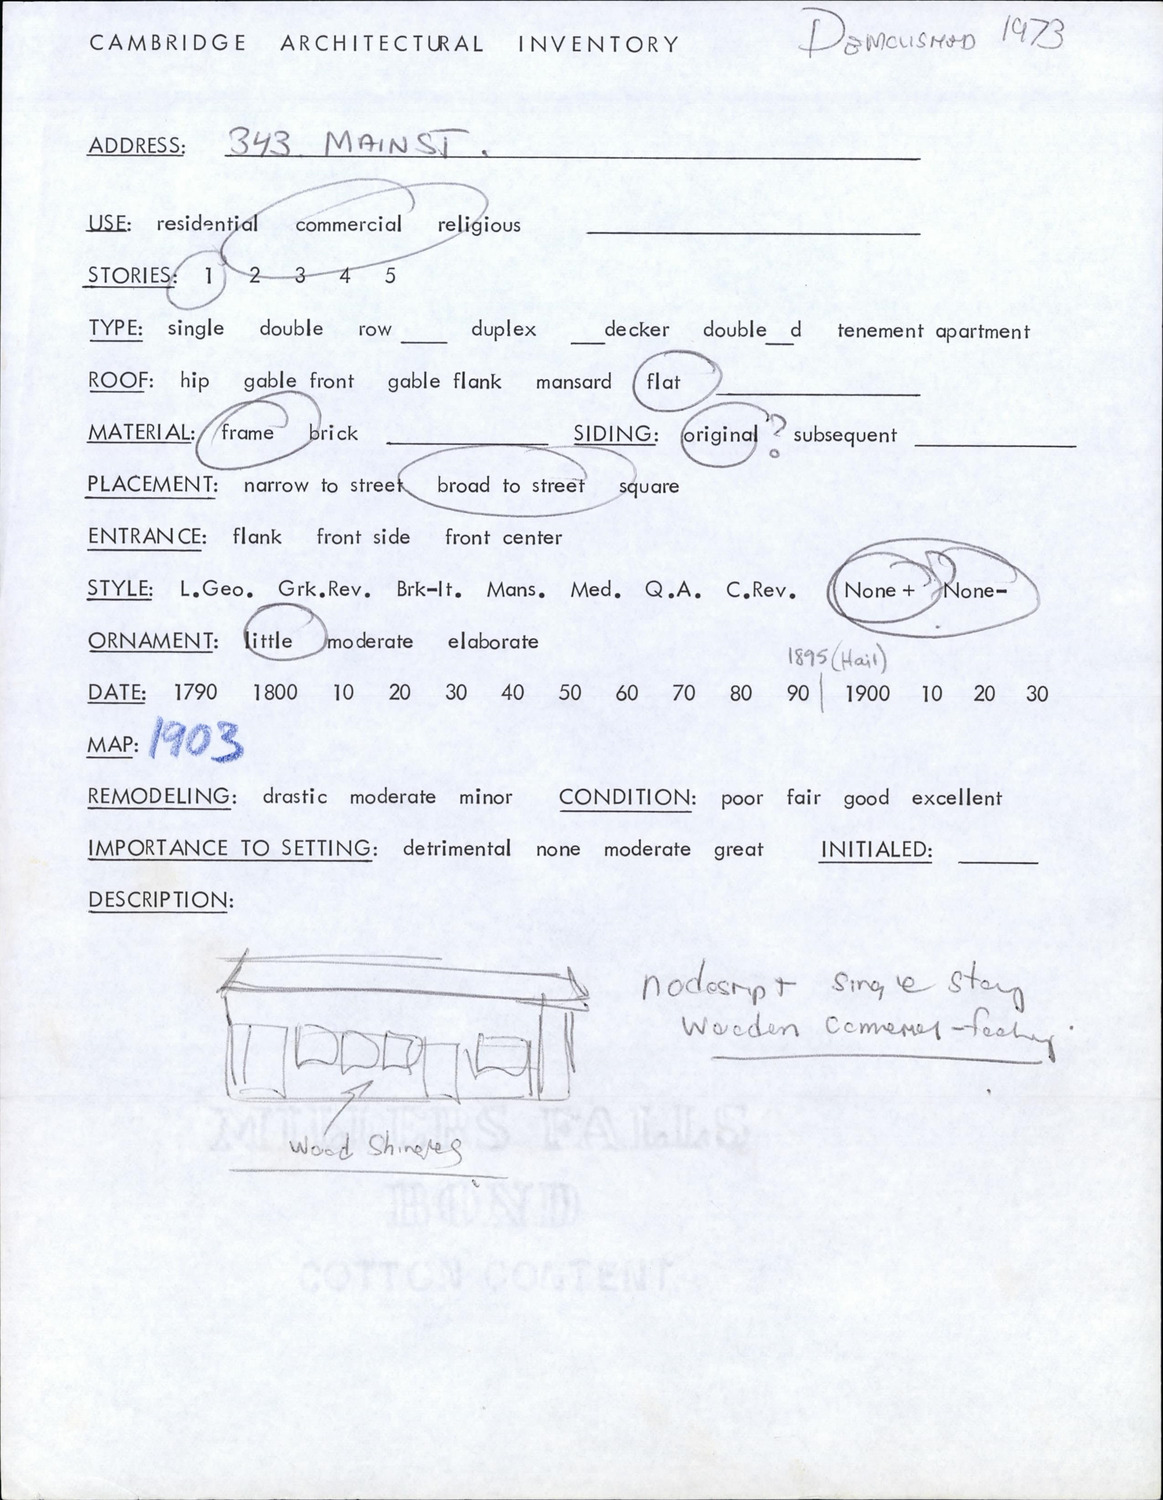 CAMBRIDGE ARCHITECTURAL INVENTORY
DEMOLISHED 1973
ADDRESS: 343 MAIN ST.
USE: residential commercial religious
STORIES: 1 2 3 4 5
TYPE: single double row ___ duplex ___decker double__d tenement apartment
ROOF: hip gable front gable flank mansard flat
MATERIAL: frame brick SIDING: original ? subsequent
PLACEMENT: narrow to street broad to street square
ENTRANCE: flank front side front center
STYLE: L.Geo. Grk.Rev. Brk-It. Mans. Med. Q.A. C.Rev. None + ? None-
ORNAMENT: little moderate elaborate
1895 (Hail)
DATE: 1790 1800 10 20 30 40 50 60 70 80 90 1900 10 20 30
MAP: 1903
REMODELING: drastic moderate minor CONDITION: poor fair good excellent
IMPORTANCE TO SETTING: detrimental none moderate great INITIALED:
DESCRIPTION:
single story
Wooden
Wood Shingles
MILLERS FALLS
BOND
COTTON CONTENT